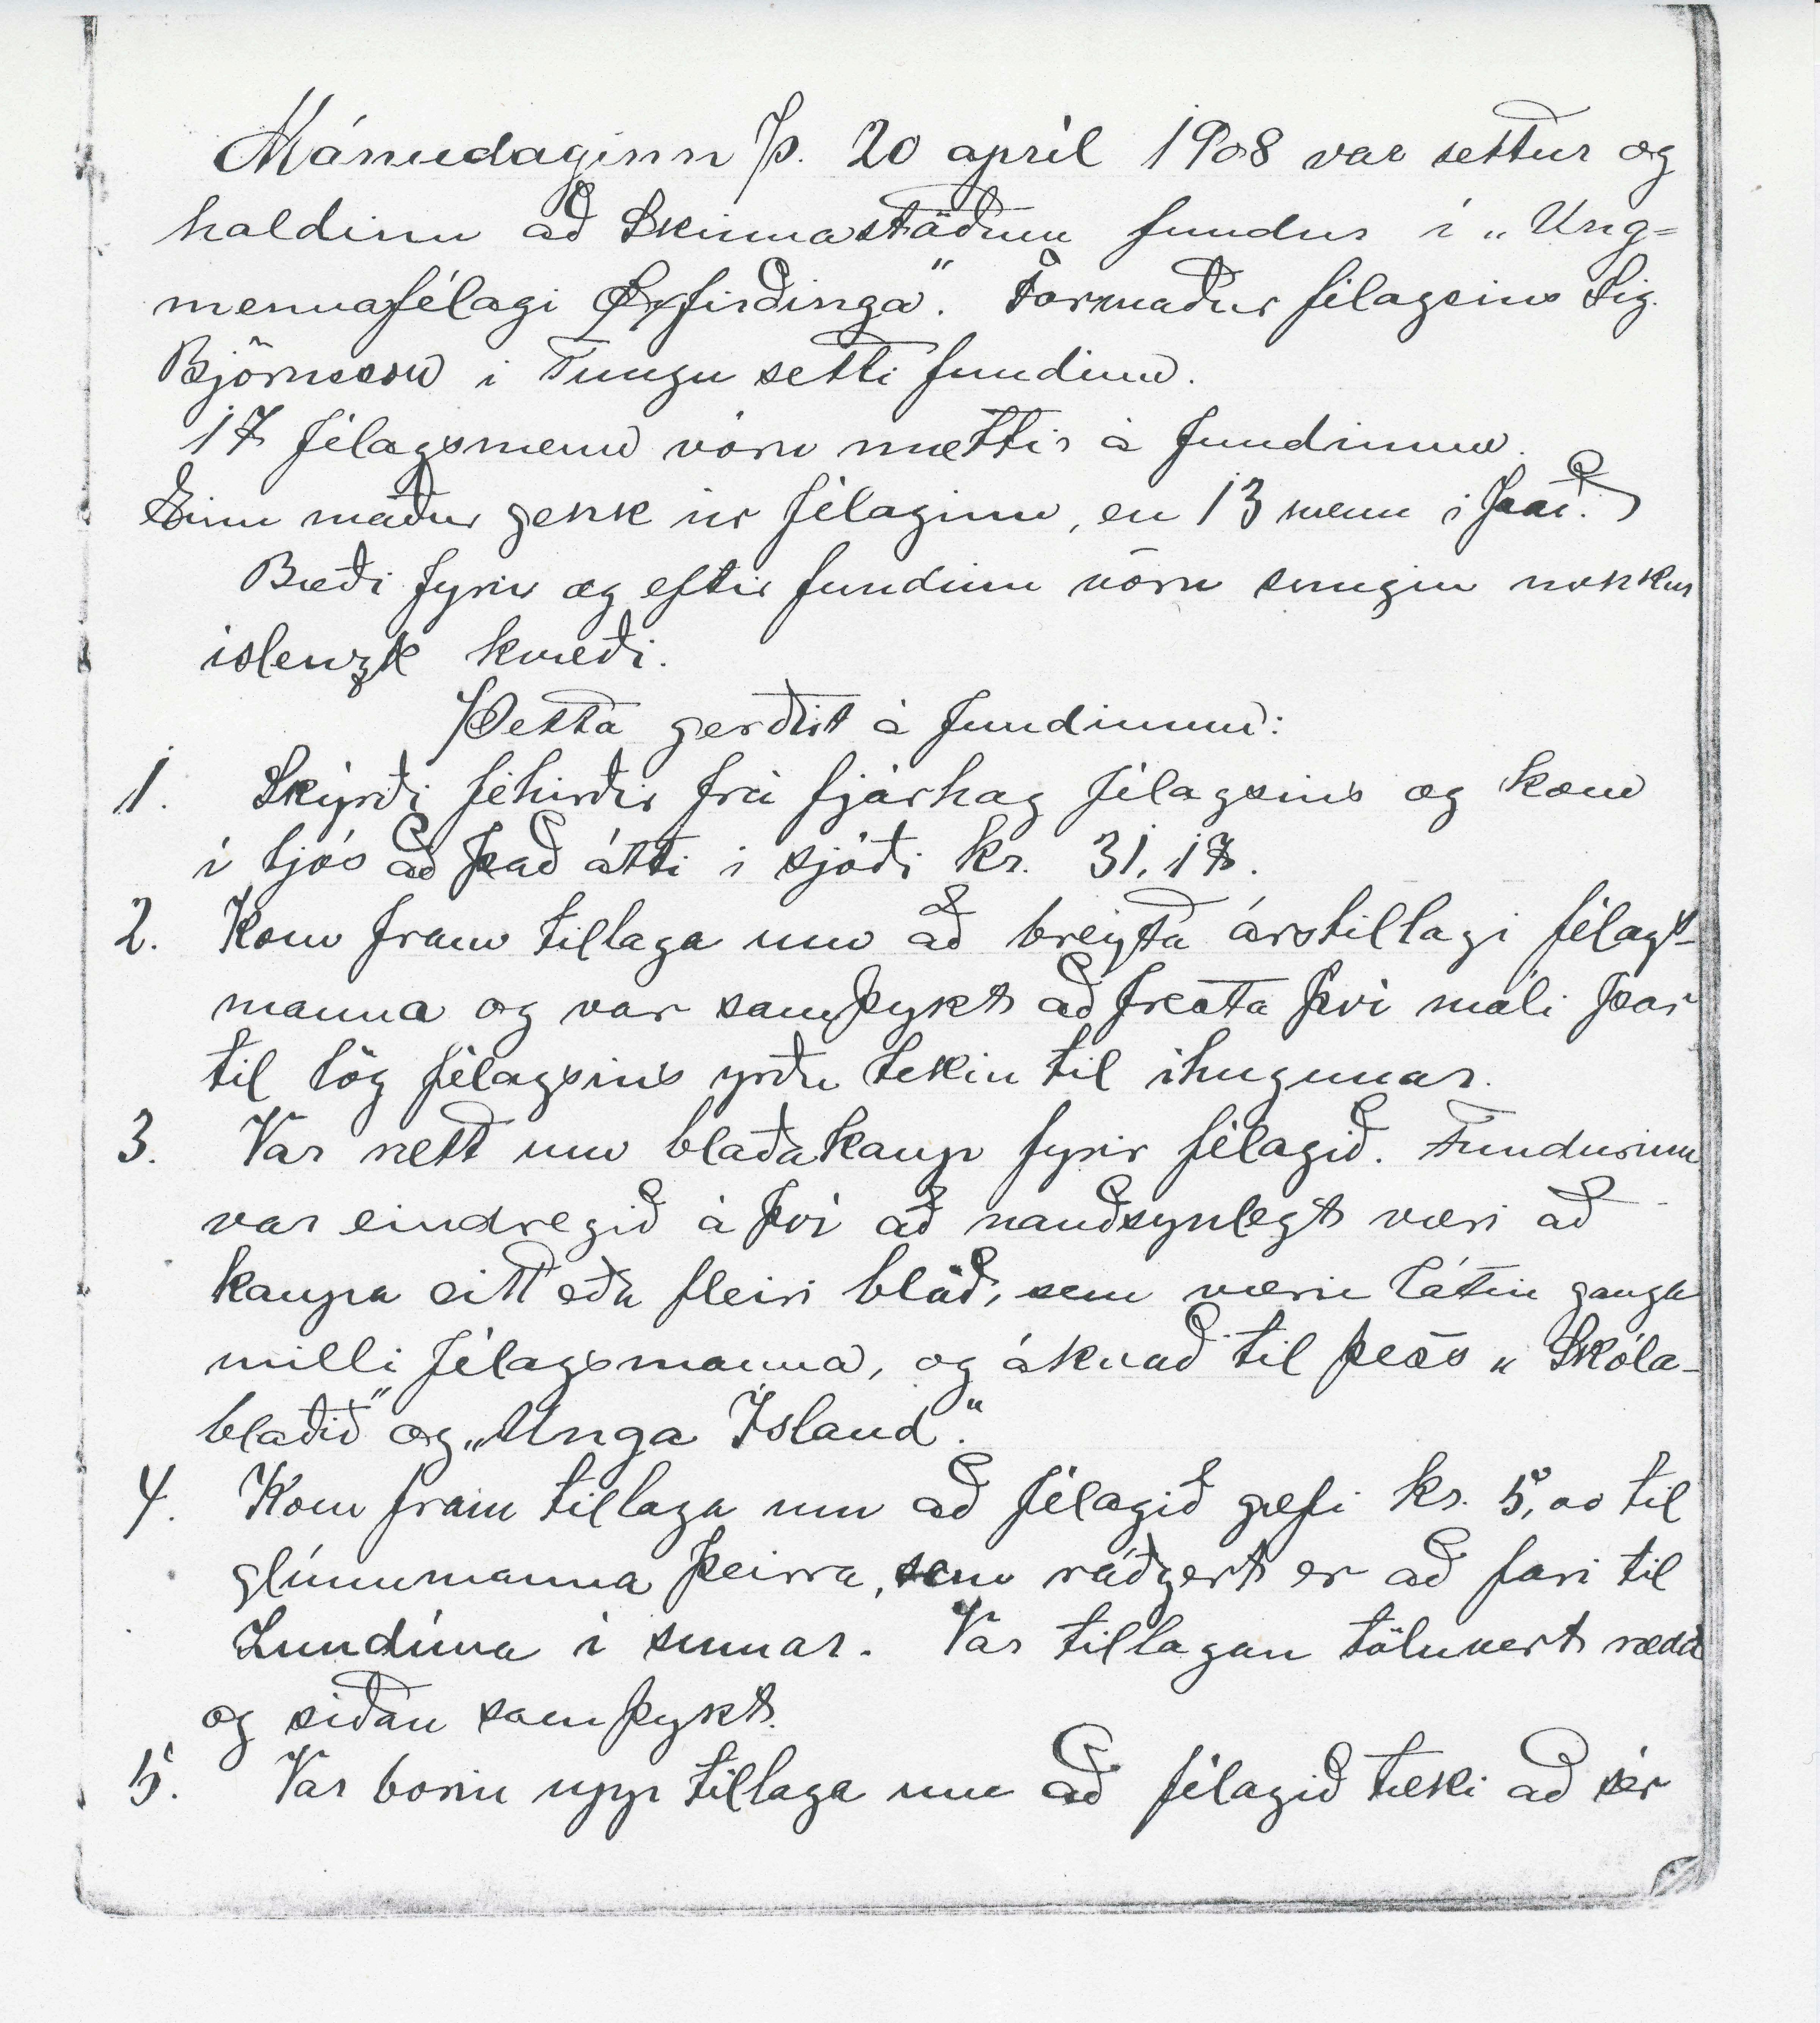 Mánudaginn þ. 20 apríl 1908 var settur og
haldinn að Skinnastöðum fundur í „Ung=
mennafélagi Öxfirðinga". Formaður félagsins Sig.
Björnsson í Tungu setti fundinn.
17 félagsmenn vóru mættir á fundinum.
Einn maður gekk úr félaginu, en 13 menn í það.
Bæði fyrir og eftir fundinn vóru sungin nokkur
íslenzk kvæði.
Þetta gerðist á fundinum:
1. Skýrði féhirðir frá fjárhag félagsins og kom
í ljós að það átti í sjóði kr. 31,17.
2. Kom fram tillaga um að breyta árstillagi félags-
manna og var samþykt að fresta því máli þar
til lög félagsins yrðu tekin til íhugunar.
3. Var rætt um blaðakaup fyrir félagið. Fundurinn
var eindregið á því að nauðsynlegt væri að
kaupa eitt eða fleiri blöð, sem væru látin ganga
milli félagsmanna, og ákvað til þess „Skóla-
blaðið" og „Unga Ísland".
4. Kom fram tillaga um að félagið gæfi kr. 5,00 til
glímumanna þeirra, sem ráðgert er að fari til
Lundúna í sumar. Var tillagan töluvert rædd
og síðan samþykt.
5. Var borin upp tillaga um að félagið tæki að sér